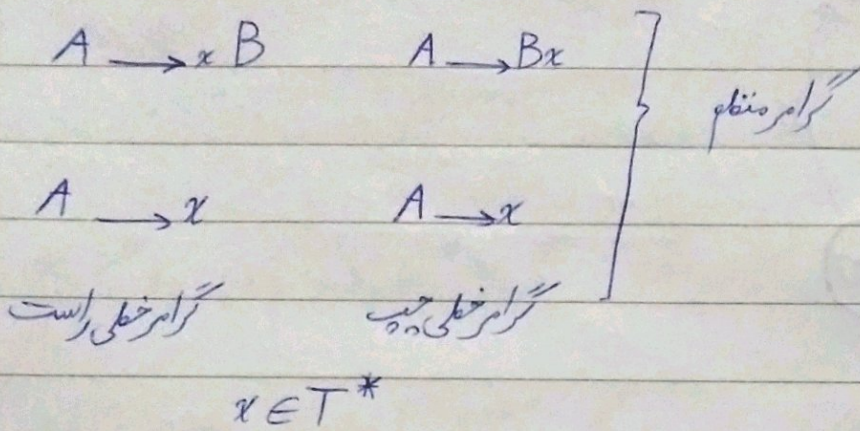 A → xB    A → Bx    گرامر منظم
A → x    A → x
گرامر خطی راست    گرامر خطی چپ
x ∈ T*